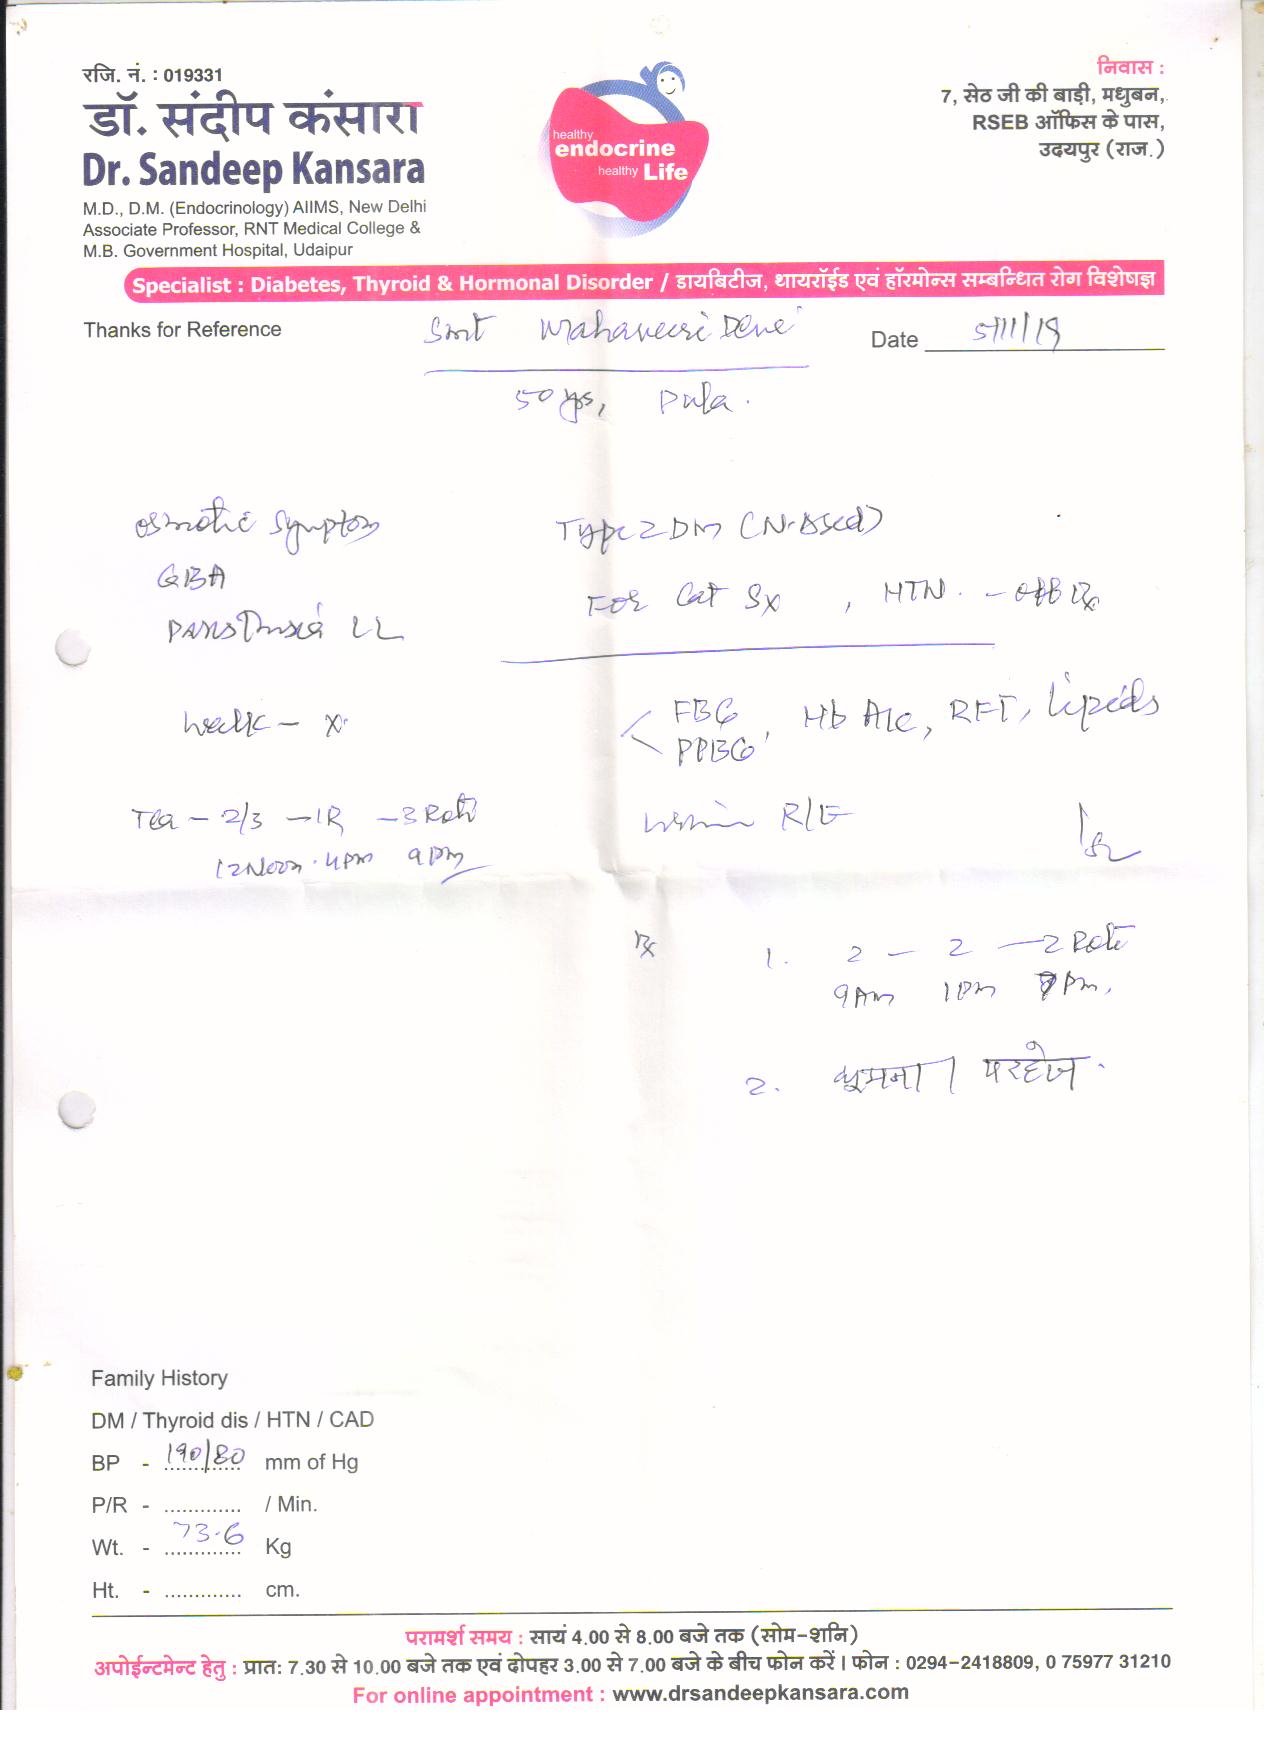 रजि. नं. : 019331
डॉ. संदीप कंसारा
Dr. Sandeep Kansara
M.D., D.M. (Endocrinology) AIIMS, New Delhi
Associate Professor, RNT Medical College &
M.B. Government Hospital, Udaipur
healthy
endocrine
healthy Life
निवास :
7, सेठ जी की बाड़ी, मधुबन,
RSEB ऑफिस के पास,
उदयपुर (राज.)
Specialist : Diabetes, Thyroid & Hormonal Disorder / डायबिटीज, थायरॉईड एवं हॉरमोन्स सम्बन्धित रोग विशेषज्ञ
Thanks for Reference
Smt
Date 5/11/19
50 yrs, Pula.
Osmotic Symptom
GBA
LL
Type 2 DM
For Cat Sx , HTN. - off Rx
Walk - x
FBG
PPBG , HbA1c, RFT, Lipids
Tea - 2/3 - 1R - 3 Roti
12 Noon. 4pm 9pm
Urine R/E
Rx
1. 2 - 2 - 2 Roti
9Am 1pm 8pm,
2. घूमना / परहेज.
Family History
DM / Thyroid dis / HTN / CAD
BP - 190/80 mm of Hg
P/R - ............. / Min.
Wt. - 73.6 Kg
Ht. - ............. cm.
परामर्श समय : सायं 4.00 से 8.00 बजे तक (सोम-शनि)
अपोईन्टमेन्ट हेतु : प्रात: 7.30 से 10.00 बजे तक एवं दोपहर 3.00 से 7.00 बजे के बीच फोन करें। फोन : 0294-2418809, 0 75977 31210
For online appointment : www.drsandeepkansara.com